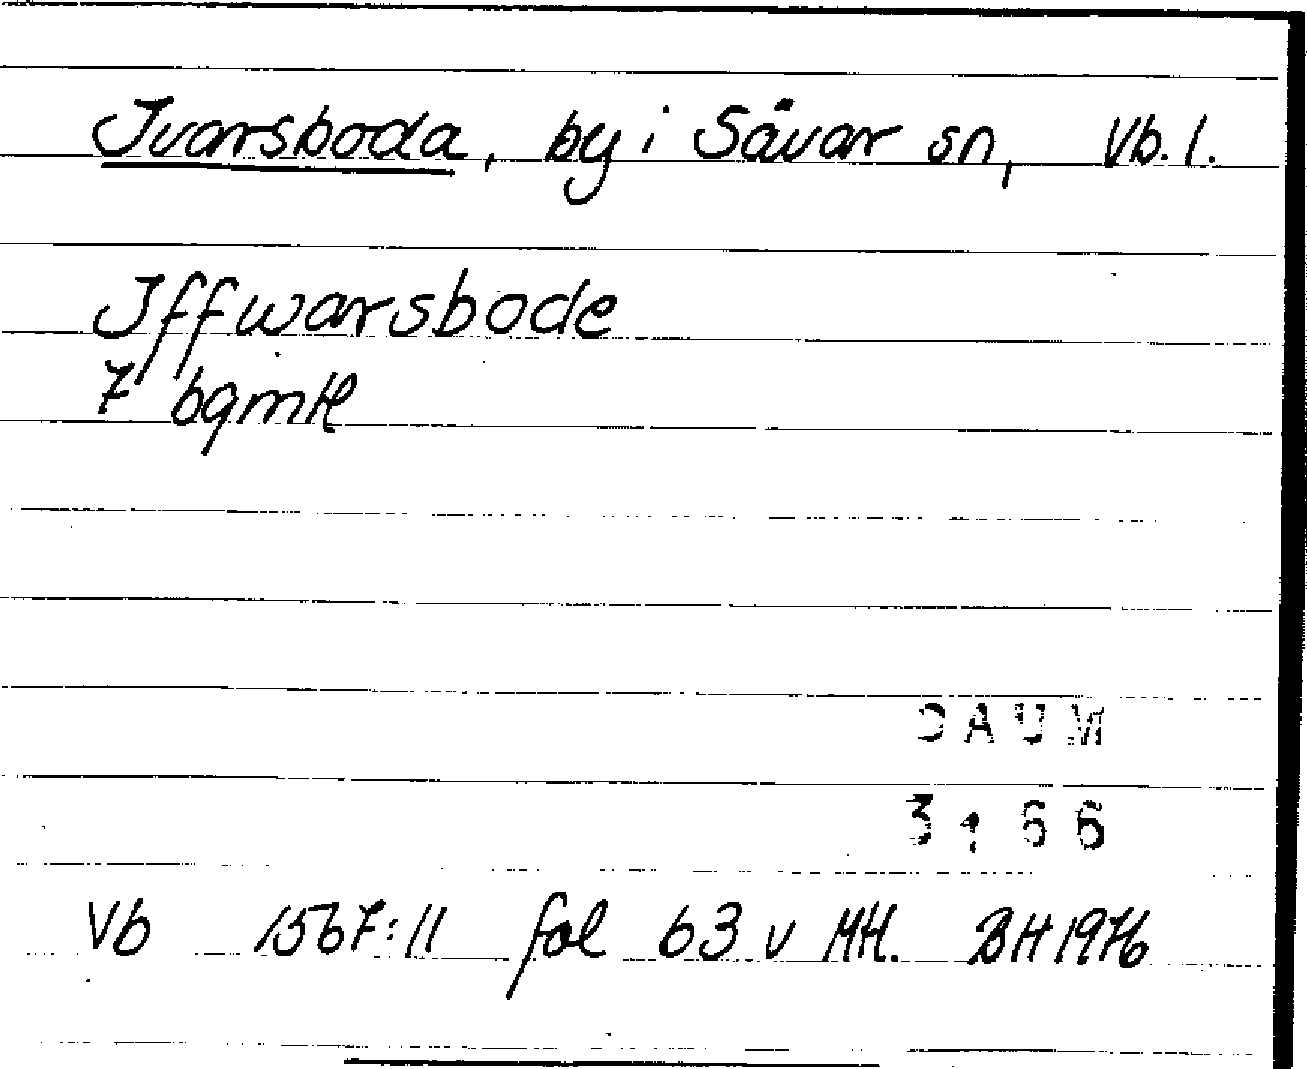 Ivarsboda, by i Sävar sn, Vb. l.
Iffwarsbode
7 bqmtl
DAUM
3166
Vb 1567:11 fol 63 v HH. BH 1976